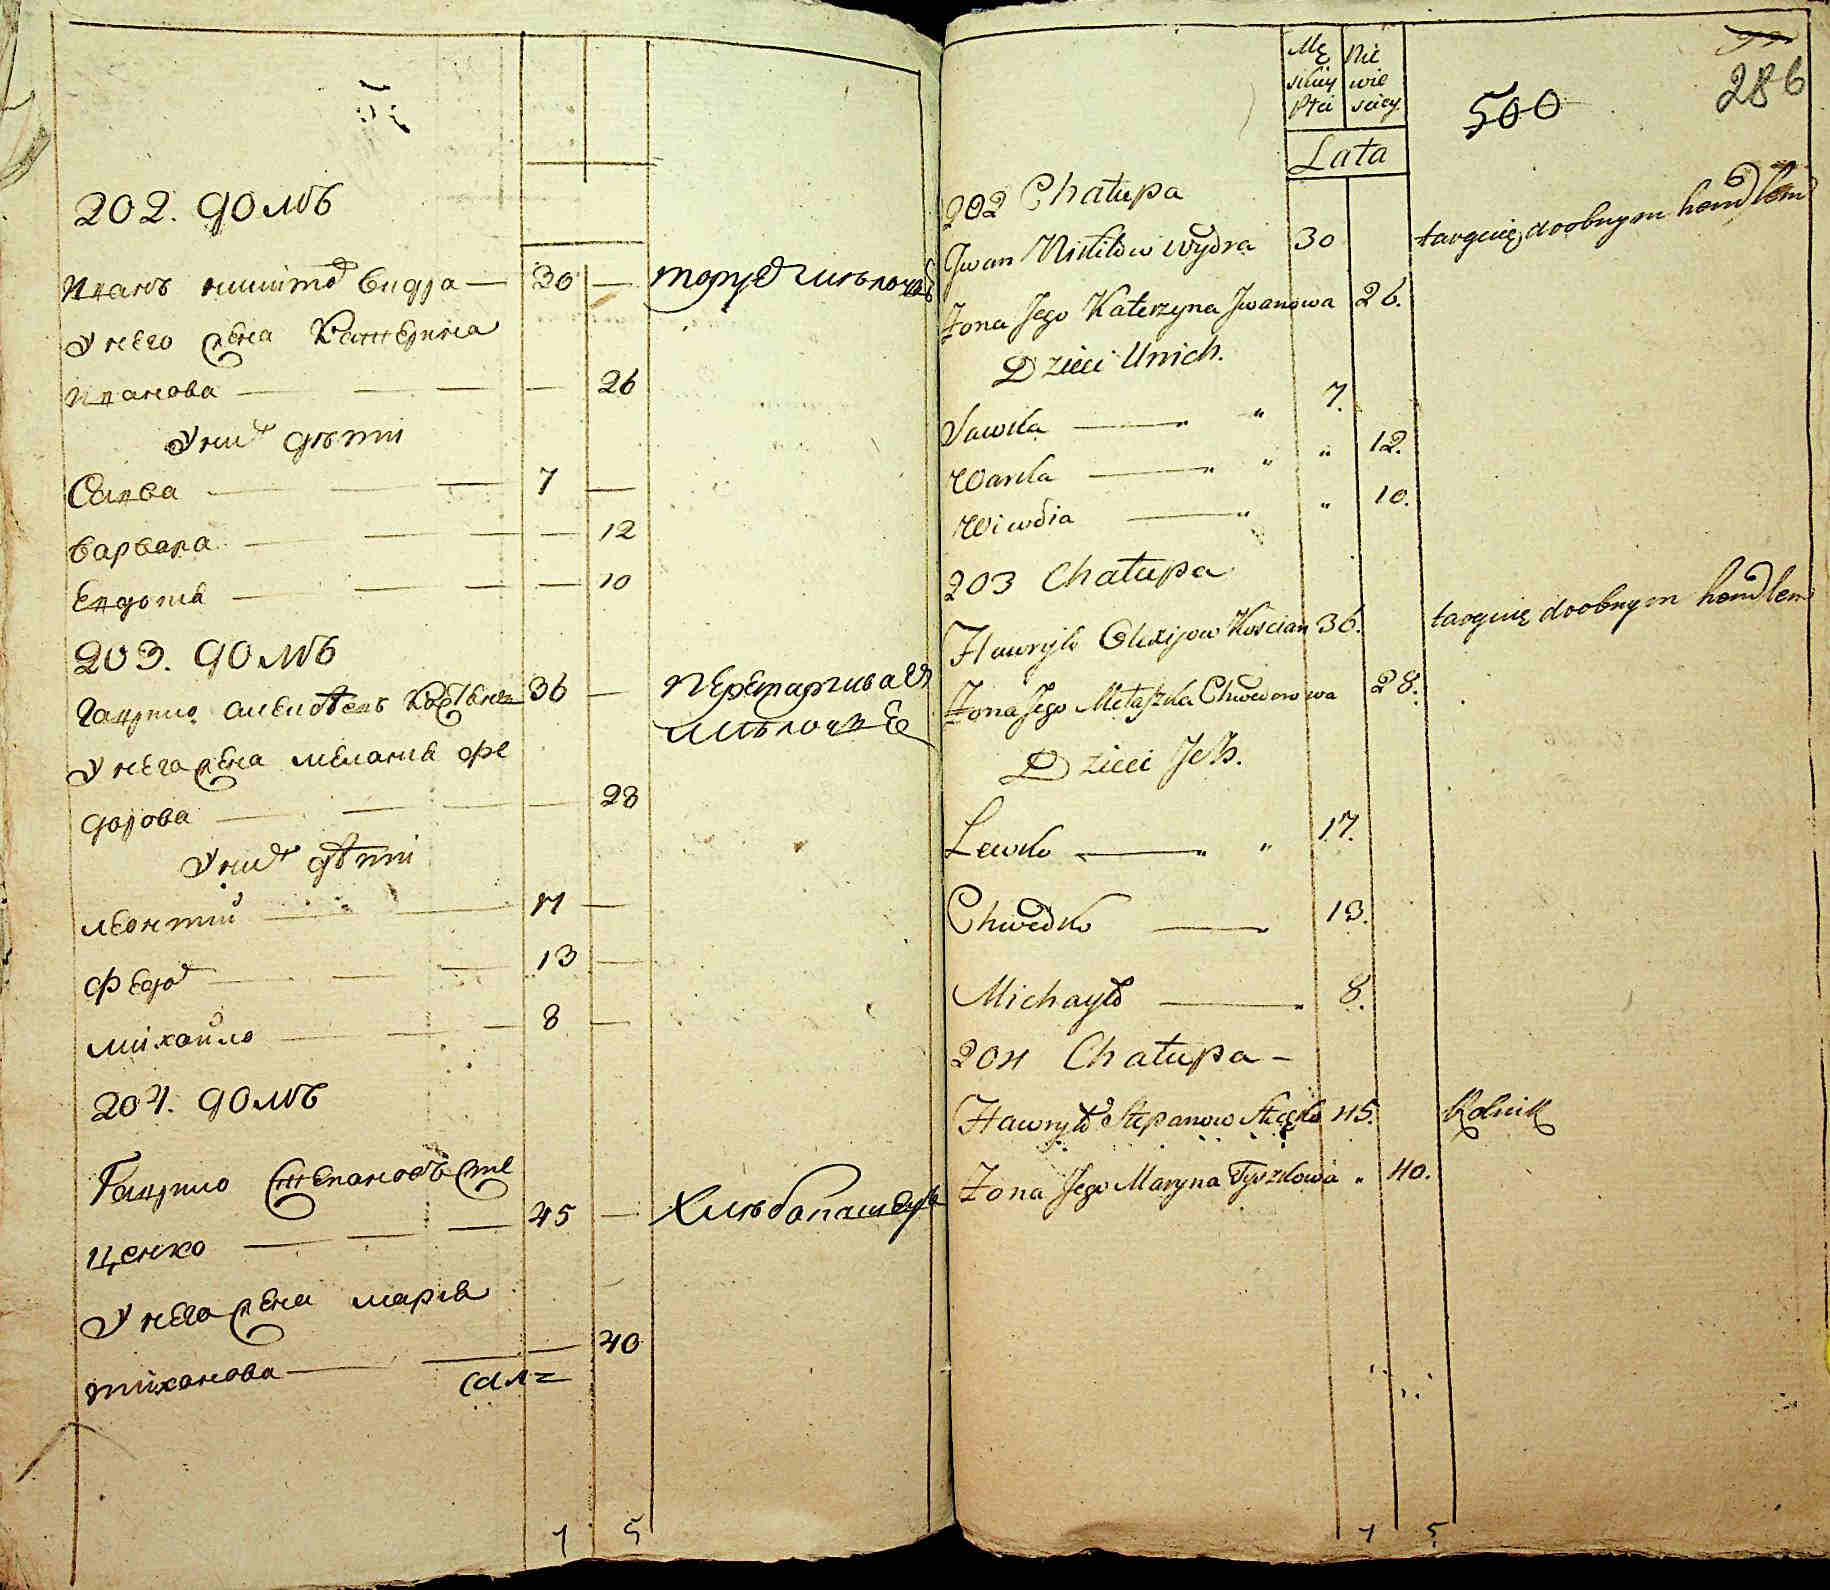 202. домъ
Иванъ никитов видра — 30 —
торуе́т мѣлоча
У него жена Катерина
Иванова — — — — 26
У них дѣти
Савва — — — 7 —
Варвара — — — — 12
Евдокия — — — — 10
203. домъ
Гаврило алексѣевъ 36 —
У него жена мелания фе
дорова — — — — 28
У них дѣти
леонтий — — 17 —
Федор — — — 13 —
михайло — — — 8 —
204. домъ
Гаврило степановъ сте
ценко — — — 45 —
Хлѣбопашецъ
У него жена мария
тихонова — — — 40
7 5
Mę Nie
skiey wie
Płci sciey
Lata
500
286
202 Chałupa
Jwan Nikitow Wydra 30
targuię doobnym hendlem
Żona Jego Katerzyna Jwanowa 26.
Dzieci Unich.
Sawka — " 7.
Warka — " " " 12.
Wiwdia — " " 10.
203 Chałupa
Hawryło Olexijow Kościan 36.
targuię doobnym hendlem
Żona Jego Mełaszka Chwedorowa 28.
Dzieci Jch.
Lewko — " " 17.
Chwedko — 13.
Michayło — 8.
204 Chałupa —
Hawryło Stepanow 45.
Rolnik
Żona Jego Maryna Tyszkowa " 40.
7 5